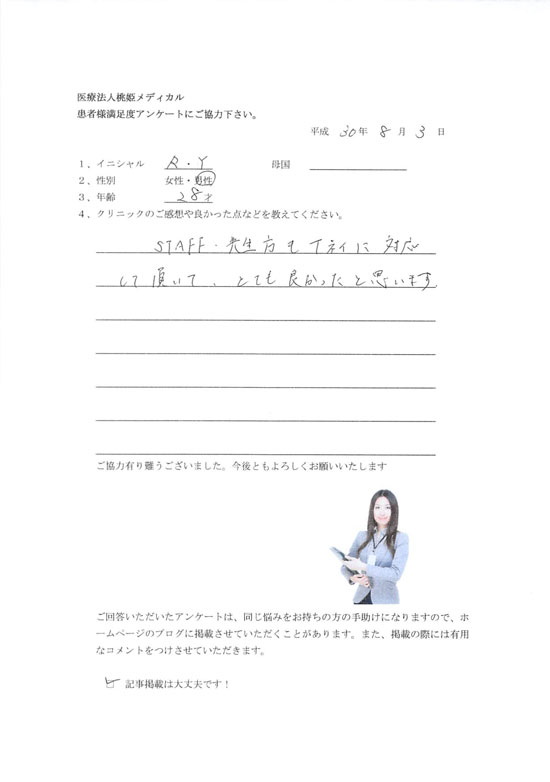 医療法人桃姫メディカル
患者様満足度アンケートにご協力下さい。
平成 30年 8 月 3 日
1、イニシャル R・Y 母国
2、性別 女性・男性
3、年齢 28才
4、クリニックのご感想や良かった点などを教えてください。
STAFF・先生方も丁ネイに対応
して頂いて、とても良かったと思います
ご協力有り難うございました。今後ともよろしくお願いいたします
ご回答いただいたアンケートは、同じ悩みをお持ちの方の手助けになりますので、ホ
ームページのブログに掲載させていただくことがあります。また、掲載の際には有用
なコメントをつけさせていただきます。
記事掲載は大丈夫です！